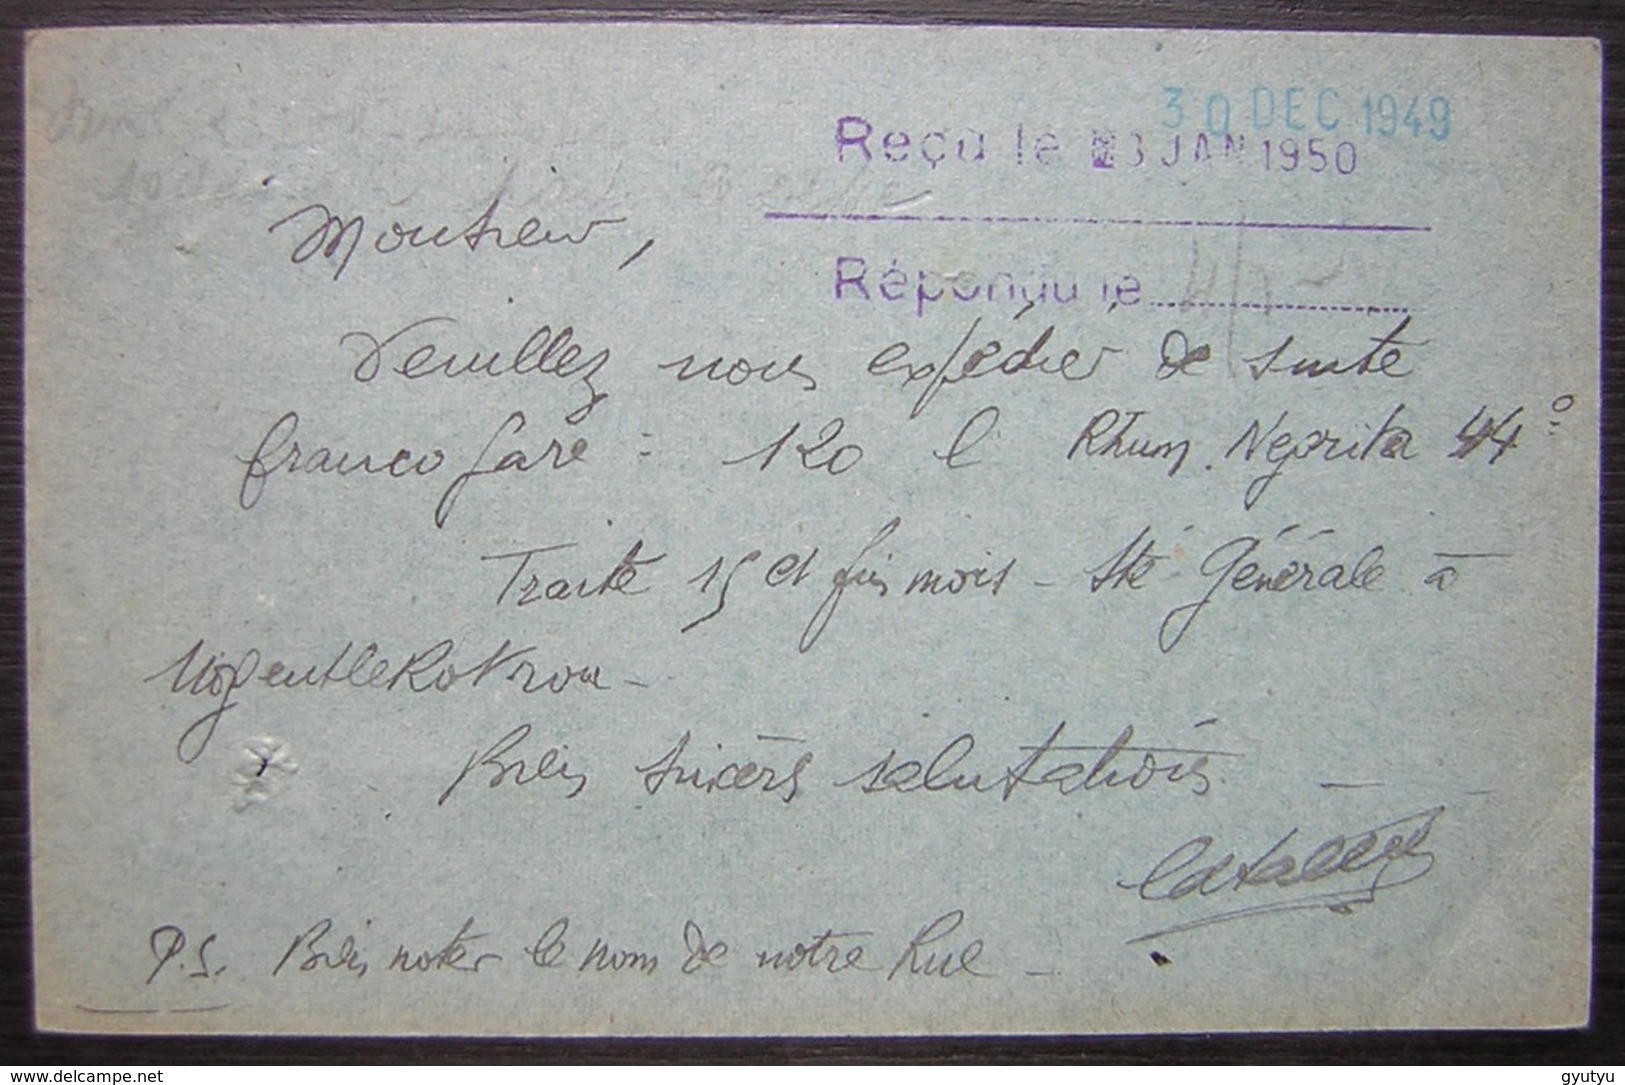 30 DEC 1949
Reçu le 3 JAN 1950
Répondu le
Monsieur,
Veuillez nous expédier de suite
franco gare = 120 l Rhum Negrita 44°
Traite 15 et fin mois - Sté Générale à
Nogent le Rotrou -
Bien sincères salutations
P.S. Bien noter le nom de notre Rue -
www.delcampe.net
gyutyu